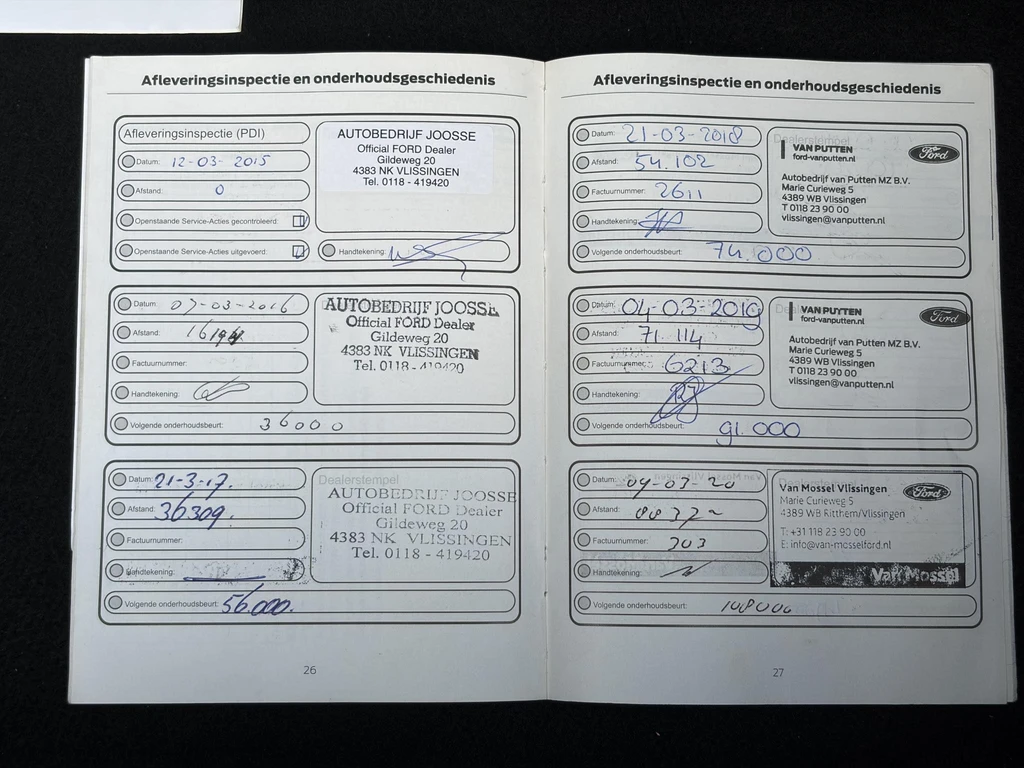 Afleveringsinspectie en onderhoudsgeschiedenis
Afleveringsinspectie (PDI)
Datum: 12-03-2015
Afstand: 0
Openstaande Service-Acties gecontroleerd:
Openstaande Service-Acties uitgevoerd:
AUTOBEDRIJF JOOSSE
Official FORD Dealer
Gildeweg 20
4383 NK VLISSINGEN
Tel. 0118 - 419420
Handtekening:
Datum: 07-03-2016
Afstand:
Factuurnummer:
Handtekening:
Volgende onderhoudsbeurt: 36000
AUTOBEDRIJF JOOSSE
Official FORD Dealer
Gildeweg 20
4383 NK VLISSINGEN
Tel. 0118 - 419420
Datum: 21-3-17.
Afstand: 36309.
Factuurnummer:
Handtekening:
Volgende onderhoudsbeurt: 56.000.
Dealerstempel
AUTOBEDRIJF JOOSSE
Official FORD Dealer
Gildeweg 20
4383 NK VLISSINGEN
Tel. 0118 - 419420
26
Afleveringsinspectie en onderhoudsgeschiedenis
Datum: 21-03-2018
Afstand: 54.102
Factuurnummer: 2611
Handtekening:
Volgende onderhoudsbeurt: 74.000
VAN PUTTEN
ford-vanputten.nl
Ford
Autobedrijf van Putten MZ B.V.
Marie Curieweg 5
4389 WB Vlissingen
T 0118 23 90 00
vlissingen@vanputten.nl
Datum: 04-03-2019
Afstand: 71.114
Factuurnummer: 6213
Handtekening:
Volgende onderhoudsbeurt: 91.000
VAN PUTTEN
ford-vanputten.nl
Ford
Autobedrijf van Putten MZ B.V.
Marie Curieweg 5
4389 WB Vlissingen
T 0118 23 90 00
vlissingen@vanputten.nl
Datum: 09-03-20
Afstand:
Factuurnummer: 303
Handtekening:
Volgende onderhoudsbeurt: 108000
Van Mossel Vlissingen
Ford
Marie Curieweg 5
4389 WB Ritthem/Vlissingen
T: +31 118 23 90 00
E: info@van-mosselford.nl
Van Mossel
27